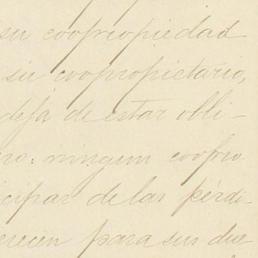 su coopropiedad
su coopropietario,
deja de estar obli-
ro: ningun coopro
cipar de las pérdi-
erecen para sus due